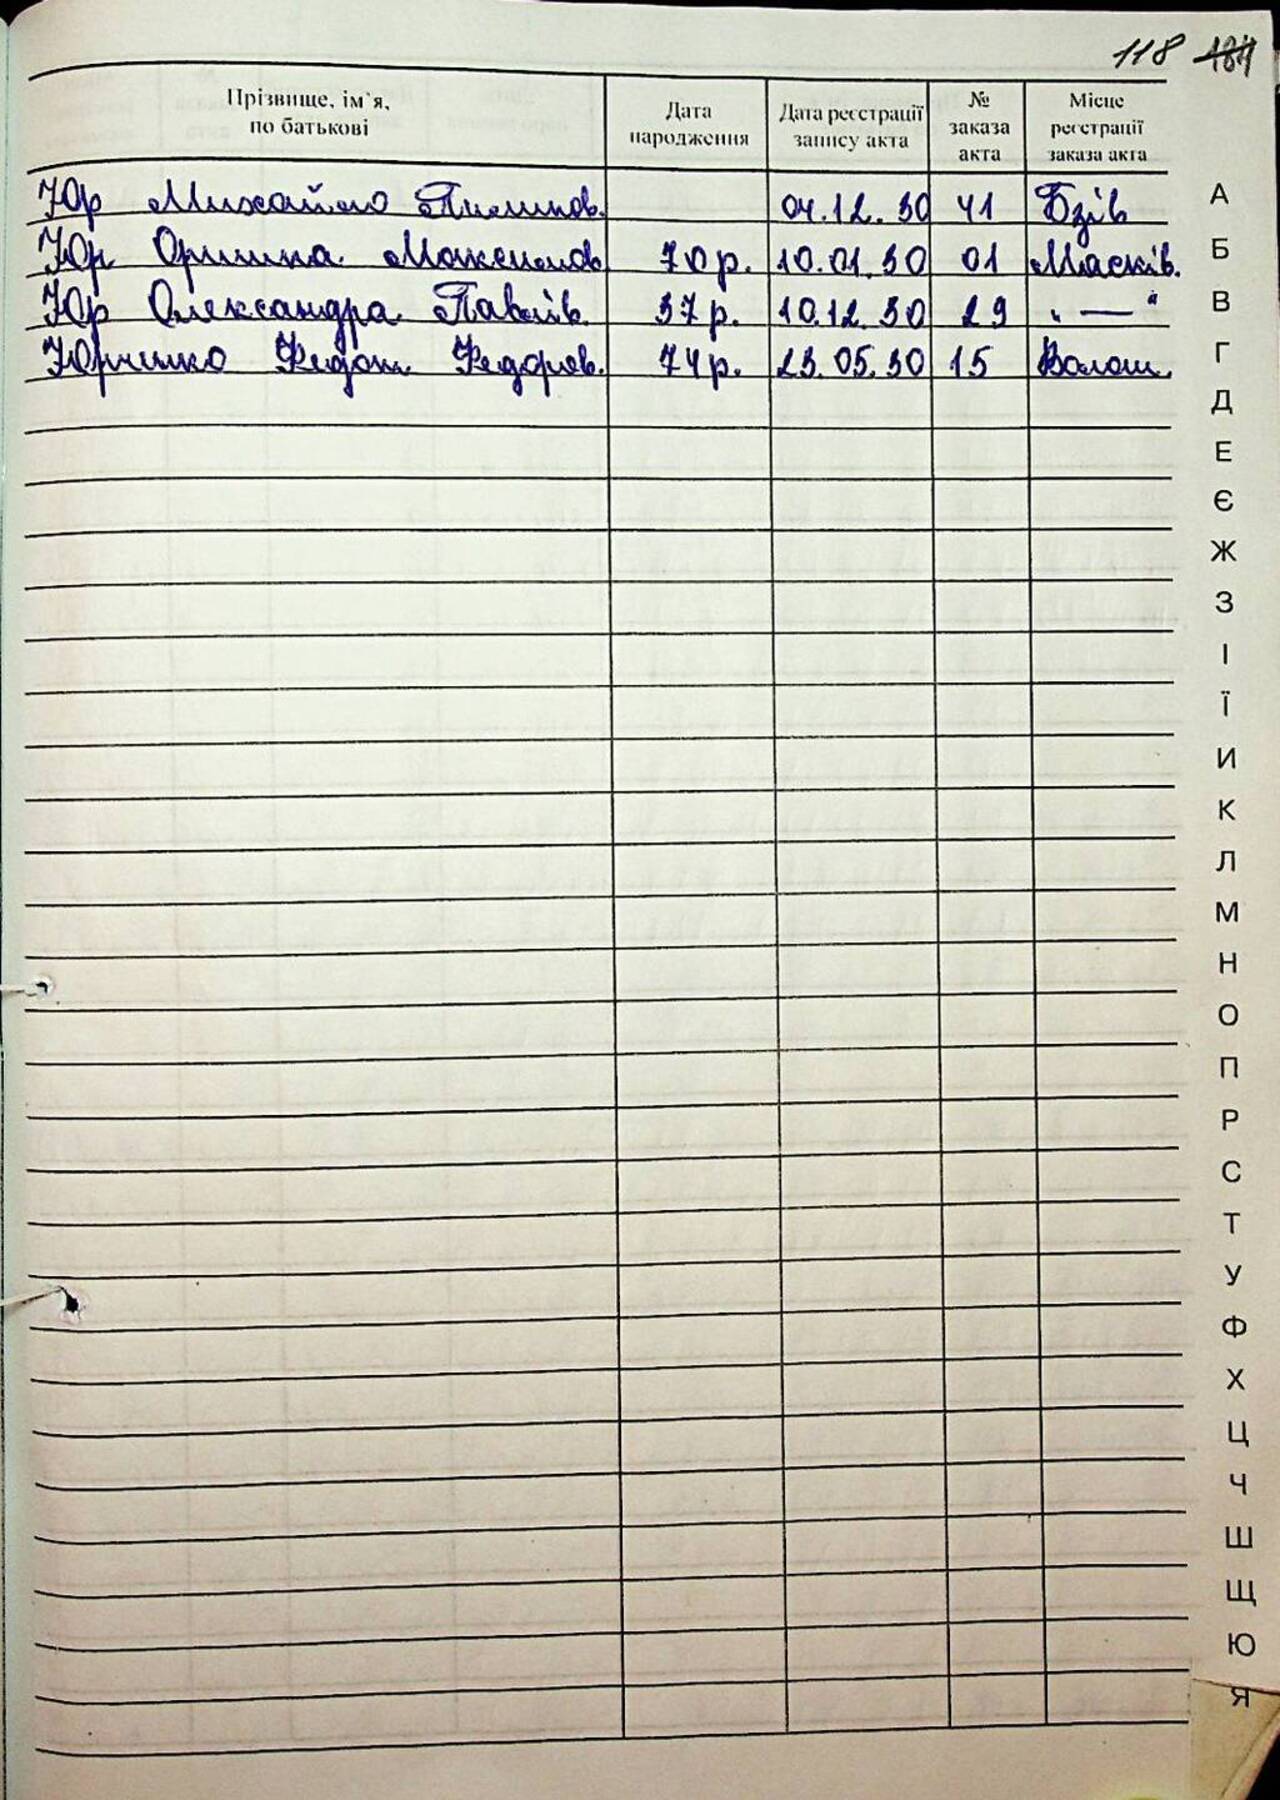 118 184
Прізвище, ім`я, по батькові Дата народження Дата реєстрації запису акта № заказа акта Місце реєстрації заказа акта
Юр Михайло Пилипов. 04.12.30 41 Бзів
Юр Оришка Максимов. 70р. 10.01.30 01 Масків.
Юр Олександра Павлів. 37р. 10.12.30 29 " — "
Юрченко Федот Федоров. 74р. 23.05.30 15 Волош.
А
Б
В
Г
Д
Е
Є
Ж
З
І
Ї
И
К
Л
М
Н
О
П
Р
С
Т
У
Ф
Х
Ц
Ч
Ш
Щ
Ю
Я